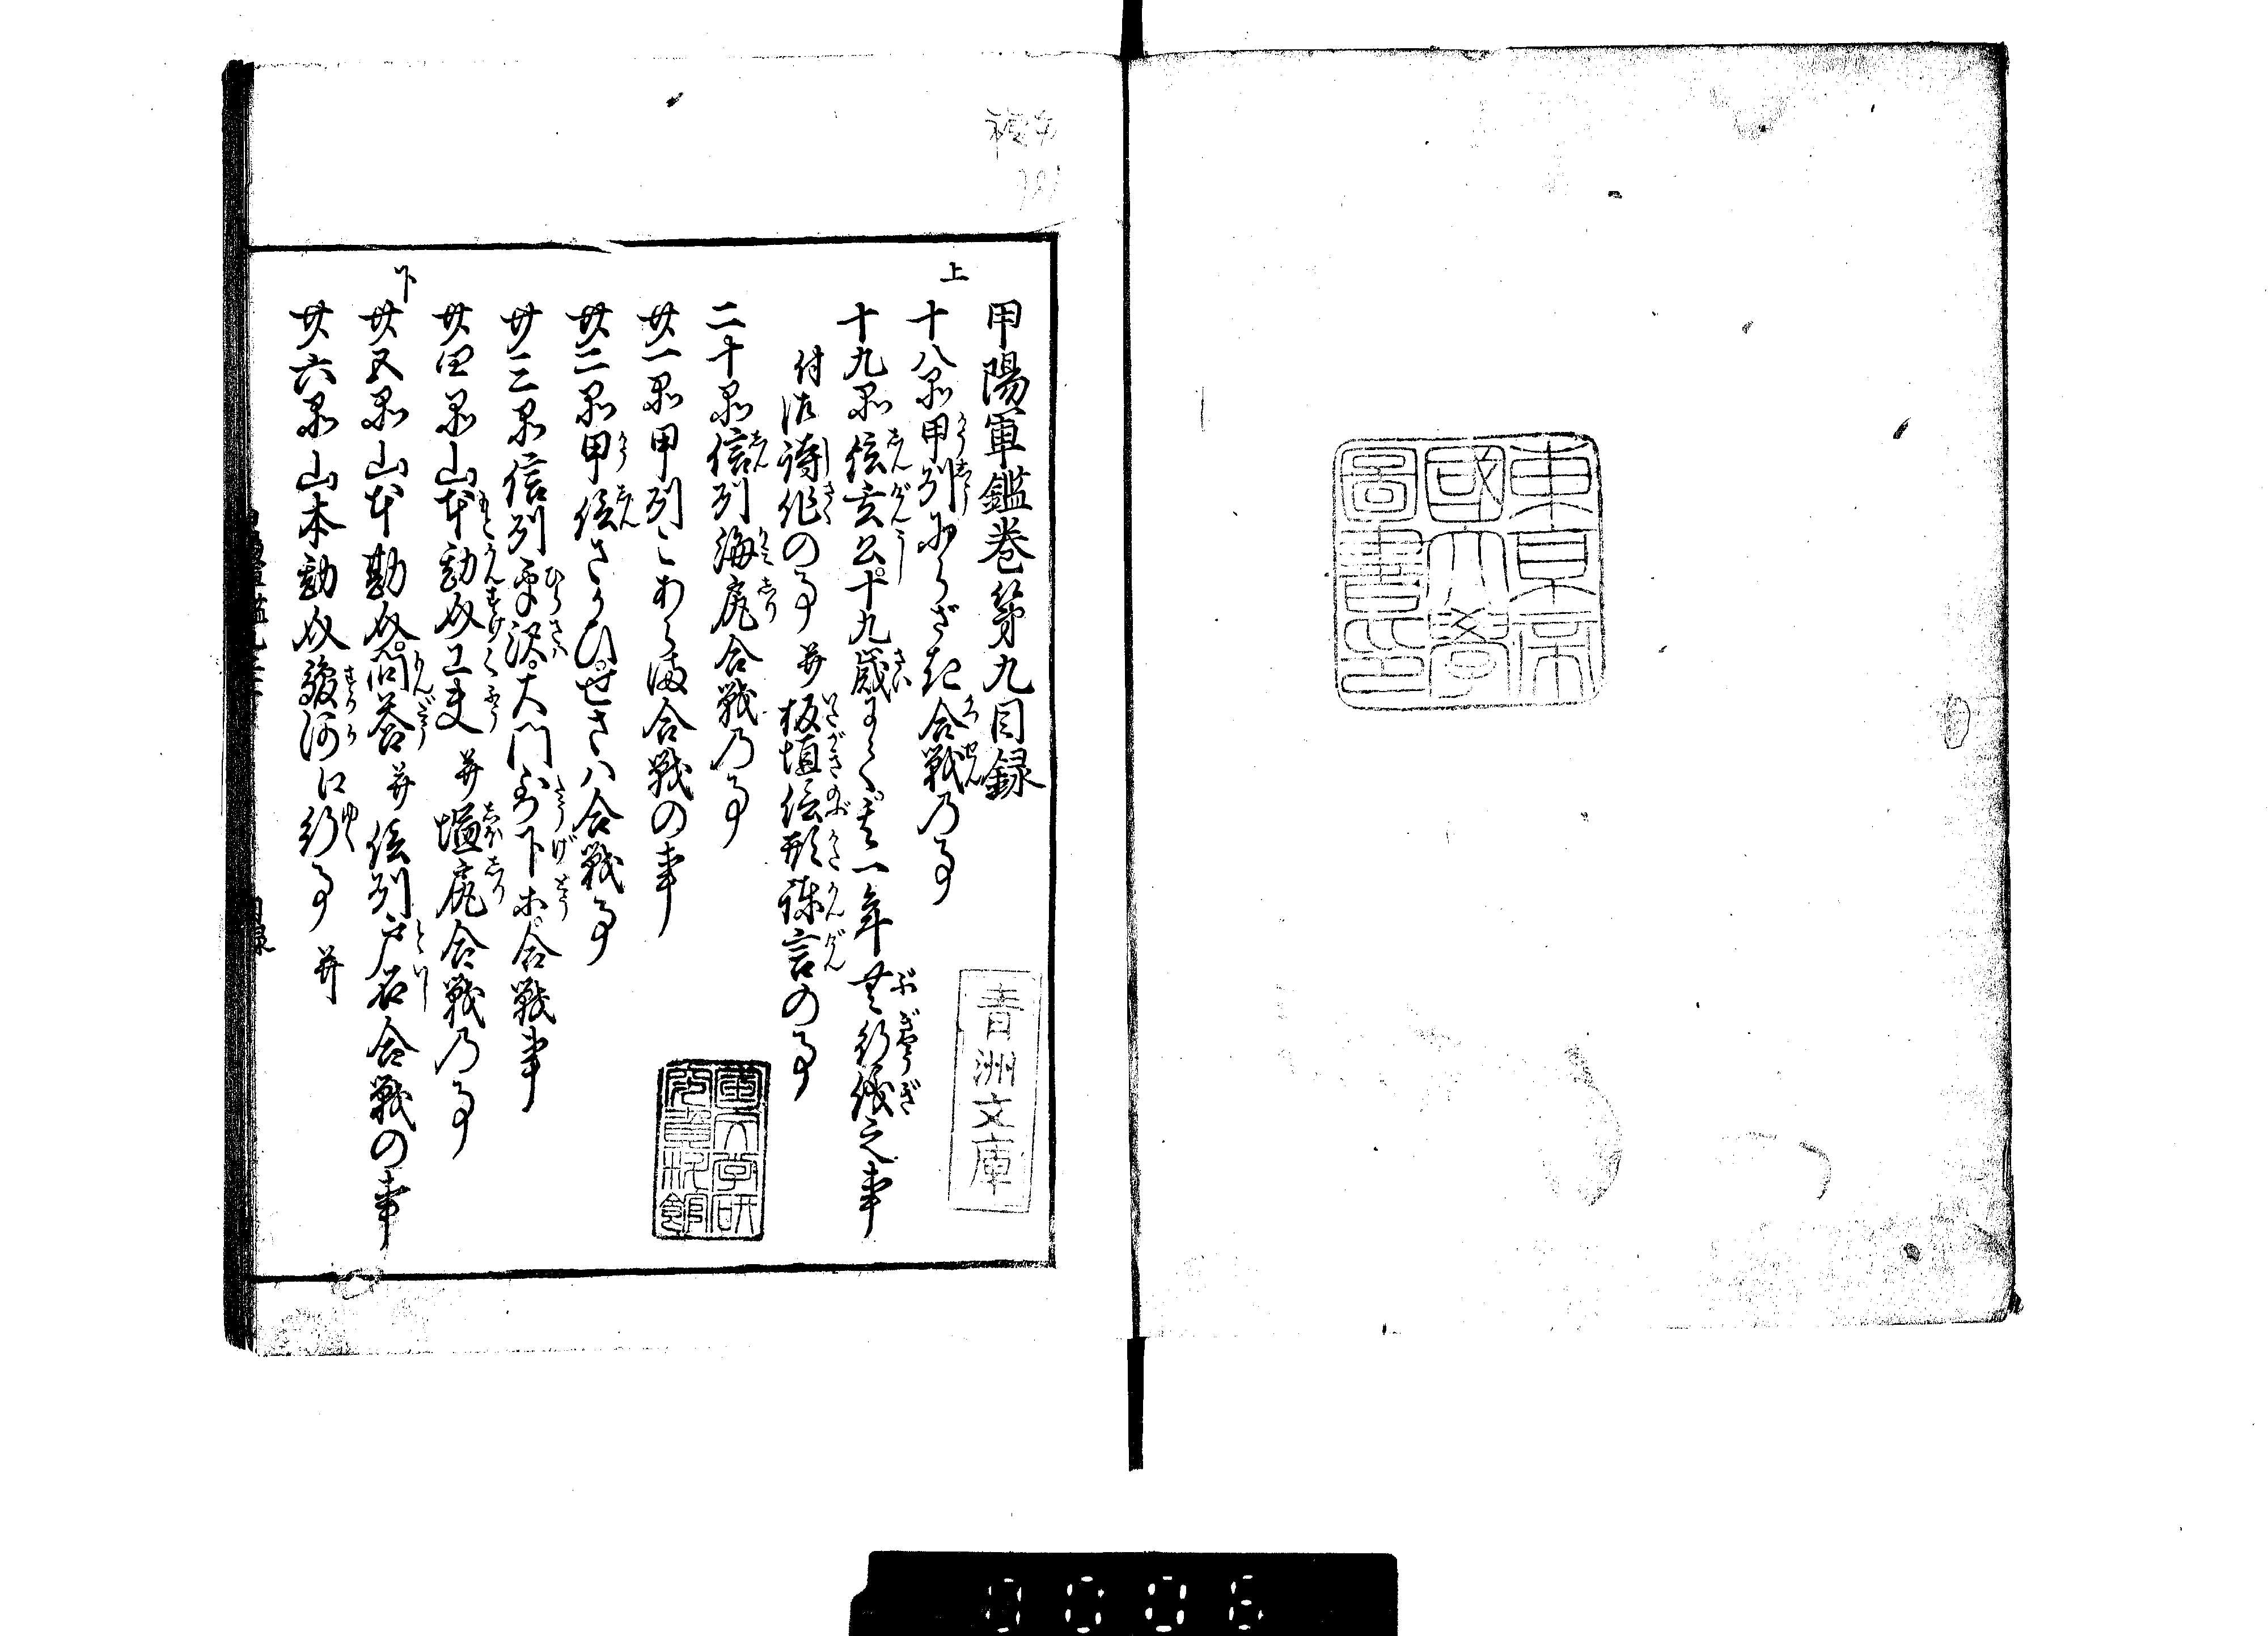 東京帝
國大學
圖書印
甲陽軍鑑巻第九目録
上
十八品甲州にらざき合戦乃事
十九品信玄公十九歳まで其一年無行儀之事
付佐詩作の事并板垣信形諫言の事
二十品信州海尻合戦乃事
廿一品甲州こあらま合戦の事
廿二品甲信さかひせさハ合戦事
廿三品信州平沢大門到下ニ合戦事
廿四品山本勘介工夫并塩尻合戦乃事
下
廿五品山本勘介問答并信州戸石合戦の事
廿六品山本勘介駿河江行事并
青洲文庫
0006